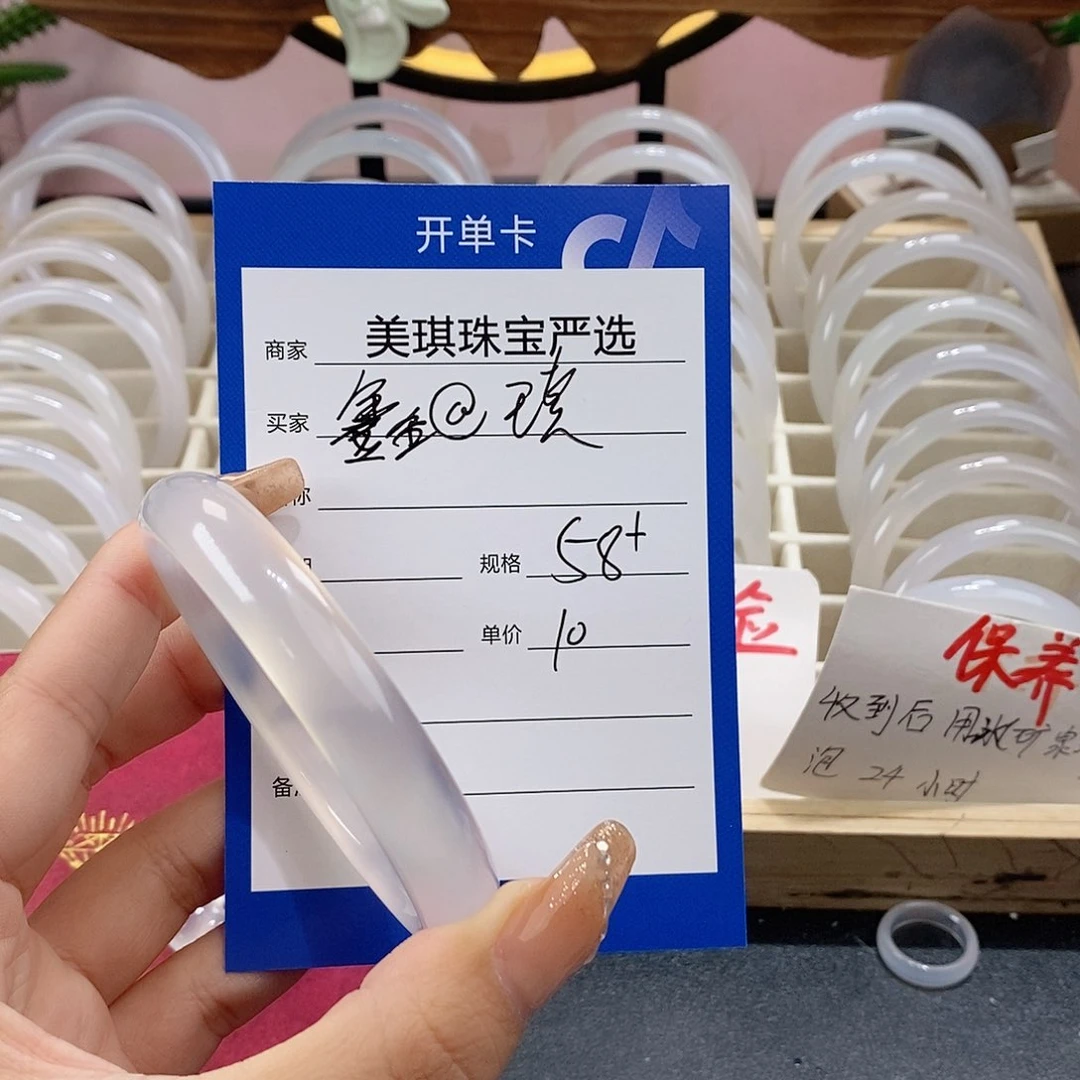 开单卡
商家 美琪珠宝严选
买家 鑫金@琼
称
规格 58+
单价 10
备
保养
收到后用冰矿泉
泡 24 小时